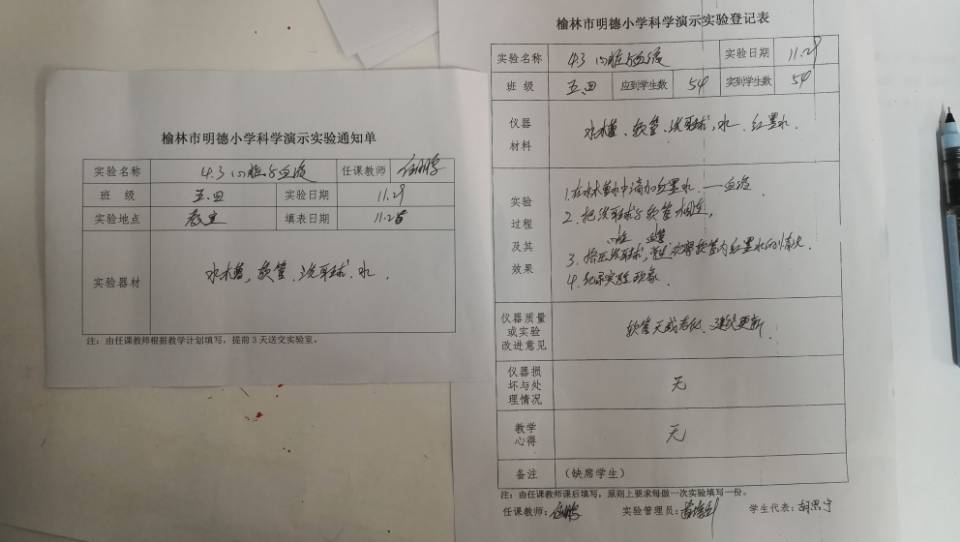 榆林市明德小学科学演示实验通知单
实验名称 4.3 心脏与血液 任课教师
班 级 五.四 实验日期 11.29
实验地点 教室 填表日期 11.25
实验器材 水槽, 软管、洗耳球、水.
注：由任课教师根据教学计划填写，提前3天送交实验室。
榆林市明德小学科学演示实验登记表
实验名称 4.3 心脏与血液 实验日期 11.29
班 级 五.四 应到学生数 54 实到学生数 54
仪器材料 水槽、软管、洗耳球、水、红墨水.
实验过程及其效果
1.在水槽中滴加红墨水. —血液
2. 把洗耳球与软管相连,
心脏 血管
3. 挤压洗耳球, 观察软管内红墨水的情况.
4. 记录实验现象.
仪器质量或实验改进意见 软管 老化、建议更新
仪器损坏与处理情况 无
教学心得 无
备注 （缺席学生）
注：由任课教师课后填写，原则上要求每做一次实验填写一份。
任课教师： 实验管理员： 学生代表：胡思宇